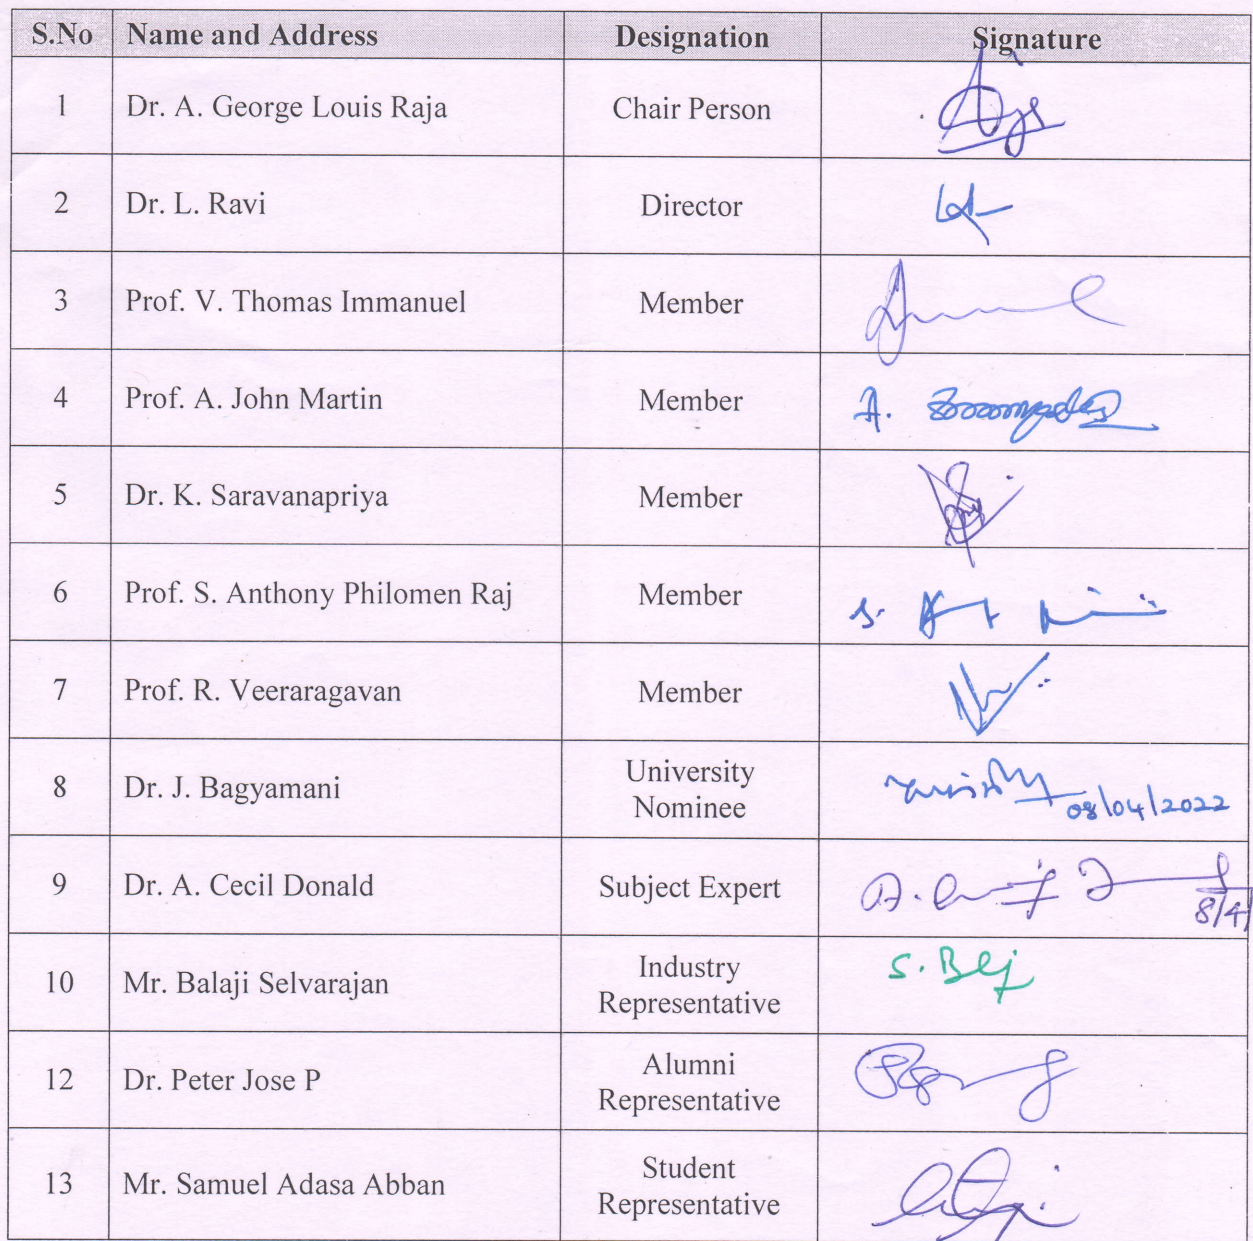 S.No Name and Address Designation Signature
1 Dr. A. George Louis Raja Chair Person
2 Dr. L. Ravi Director
3 Prof. V. Thomas Immanuel Member
4 Prof. A. John Martin Member A.
5 Dr. K. Saravanapriya Member
6 Prof. S. Anthony Philomen Raj Member S.
7 Prof. R. Veeraragavan Member
8 Dr. J. Bagyamani University
Nominee 08/04/2022
9 Dr. A. Cecil Donald Subject Expert A.
8/4/
10 Mr. Balaji Selvarajan Industry
Representative S.
12 Dr. Peter Jose P Alumni
Representative
13 Mr. Samuel Adasa Abban Student
Representative